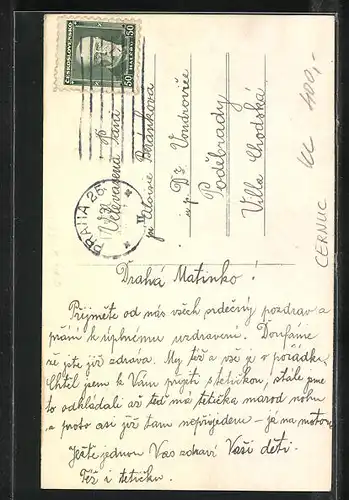 ČESKOSLOVENSKO
50 HALÉŘŮ 50
PRAHA 25
Velevážená paní
pí Aloisie Beránková
u p. Dr. Vondrovice
Poděbrady
Villa Chodská
ČERNUC Kč 400,-
Drahá Matinko!
Přijměte od nás všech srdečný pozdrav a
přání k úplnému uzdravení. Doufáme
že jste již zdráva. My též a vše je v pořádku.
Chtěl jem k Vám přijeti s tetičkou, stále jsme
to odkládali až teď má tetička marod nohu
a proto asi již tam nepřijedem – já na motor
Ještě jednou Vás zdraví Vaší děti.
Též i tetička.